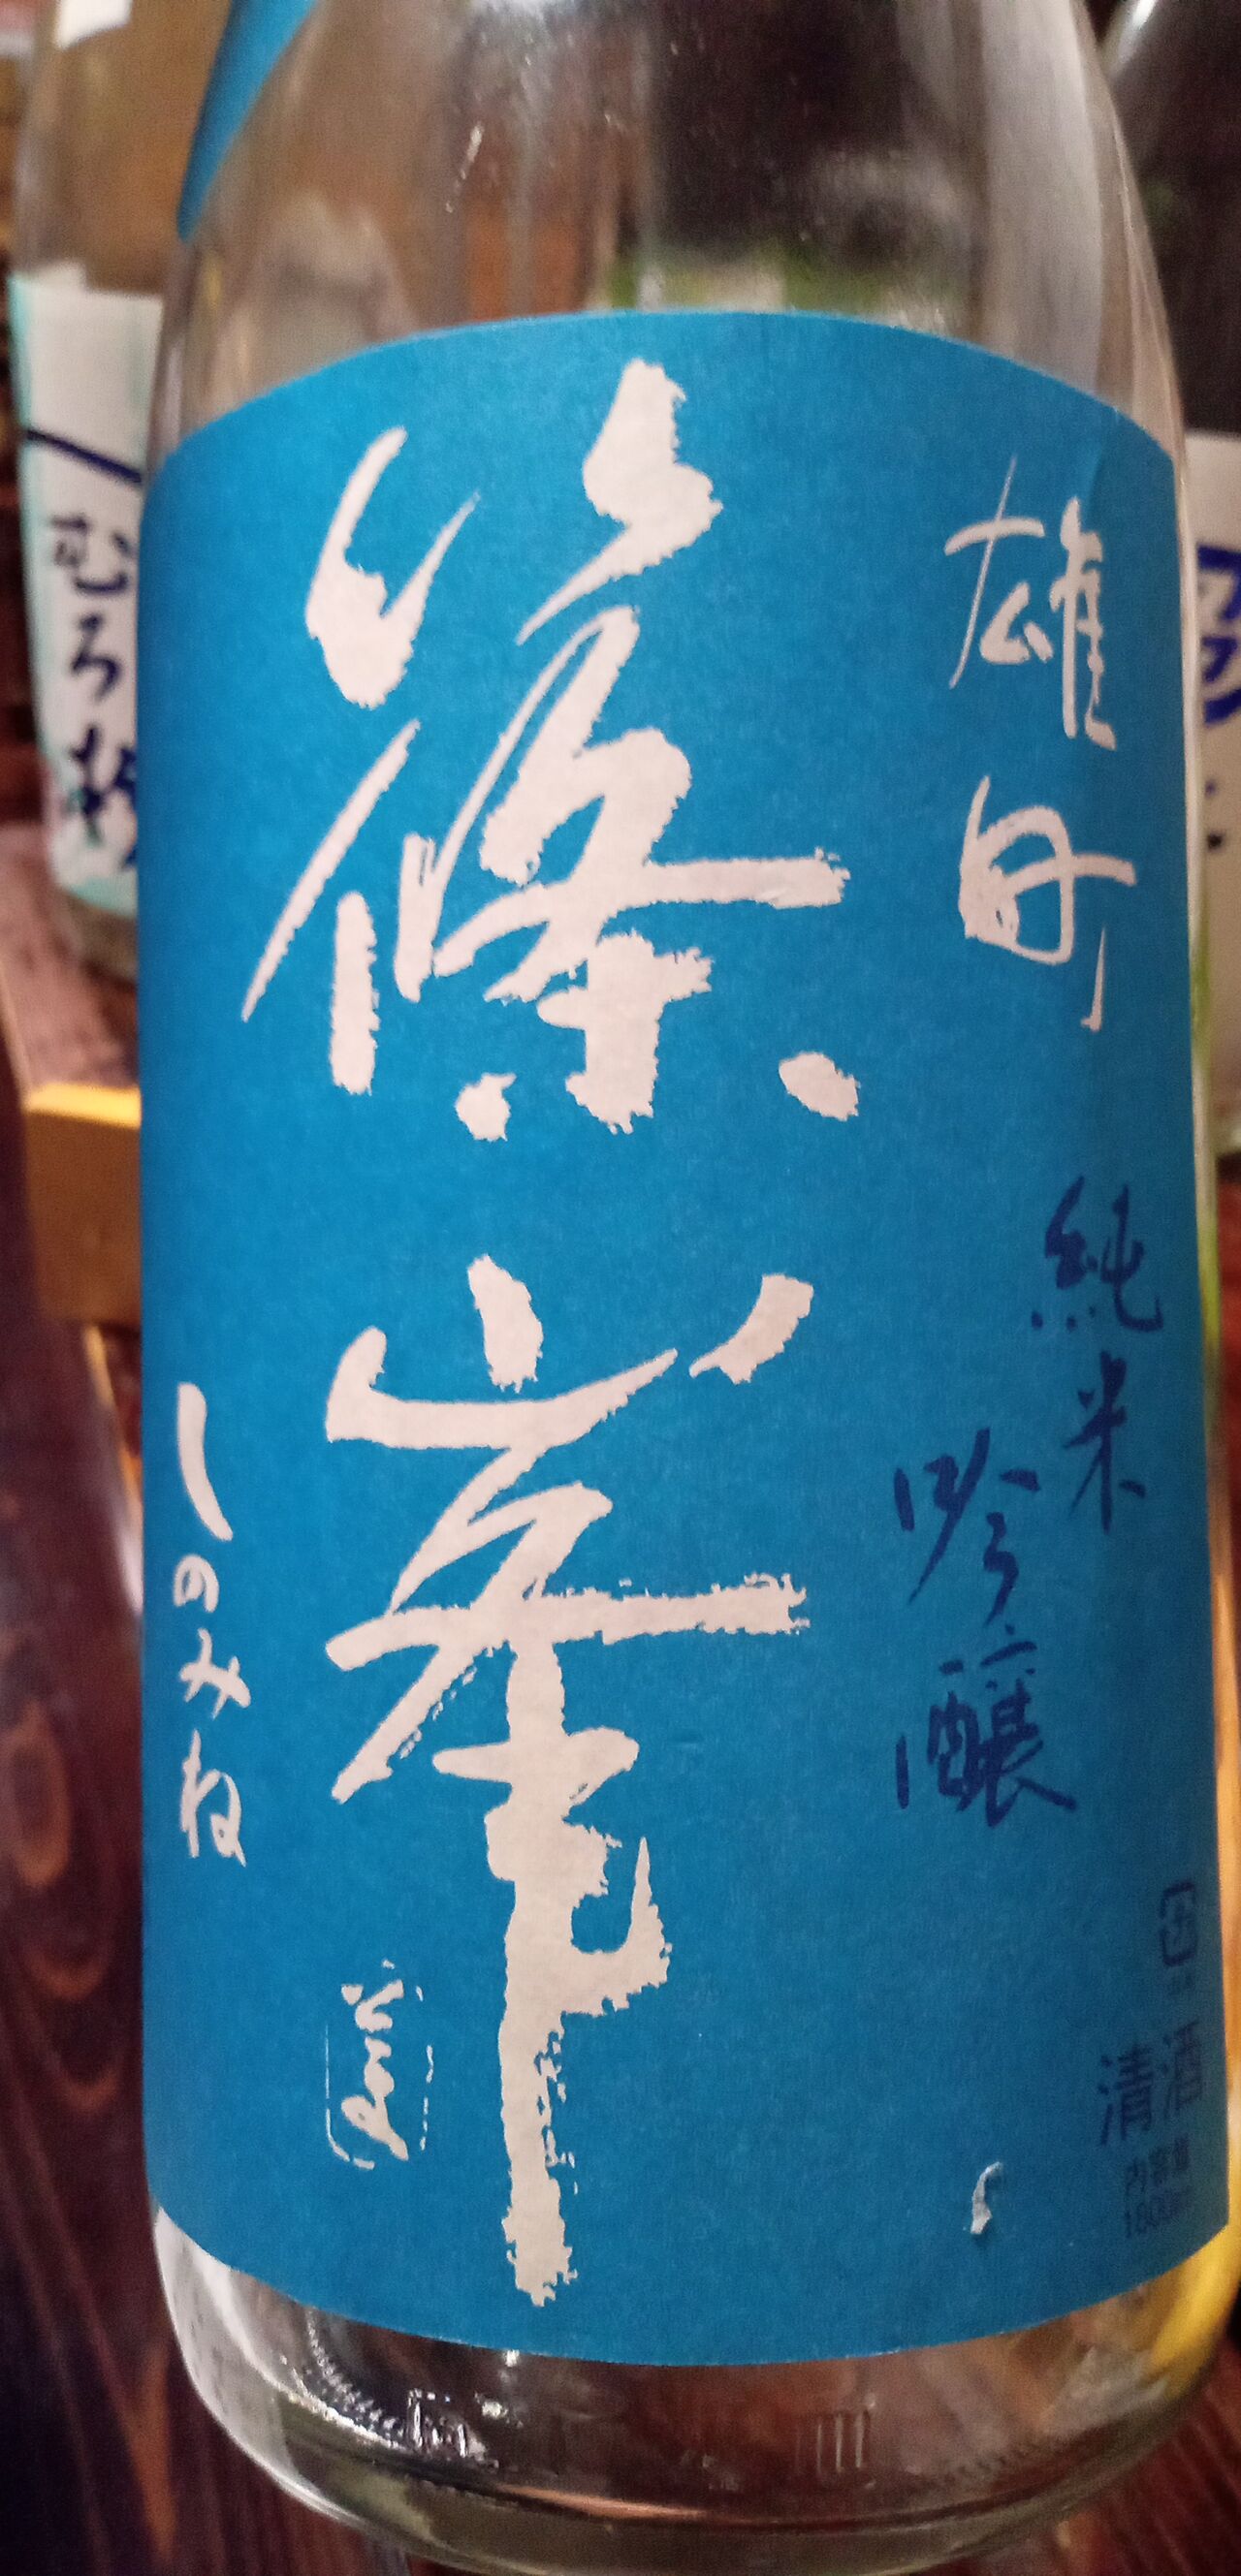 雄町
純米
吟醸
篠峯
しのみね
清酒
内容量
1800ml
むろ